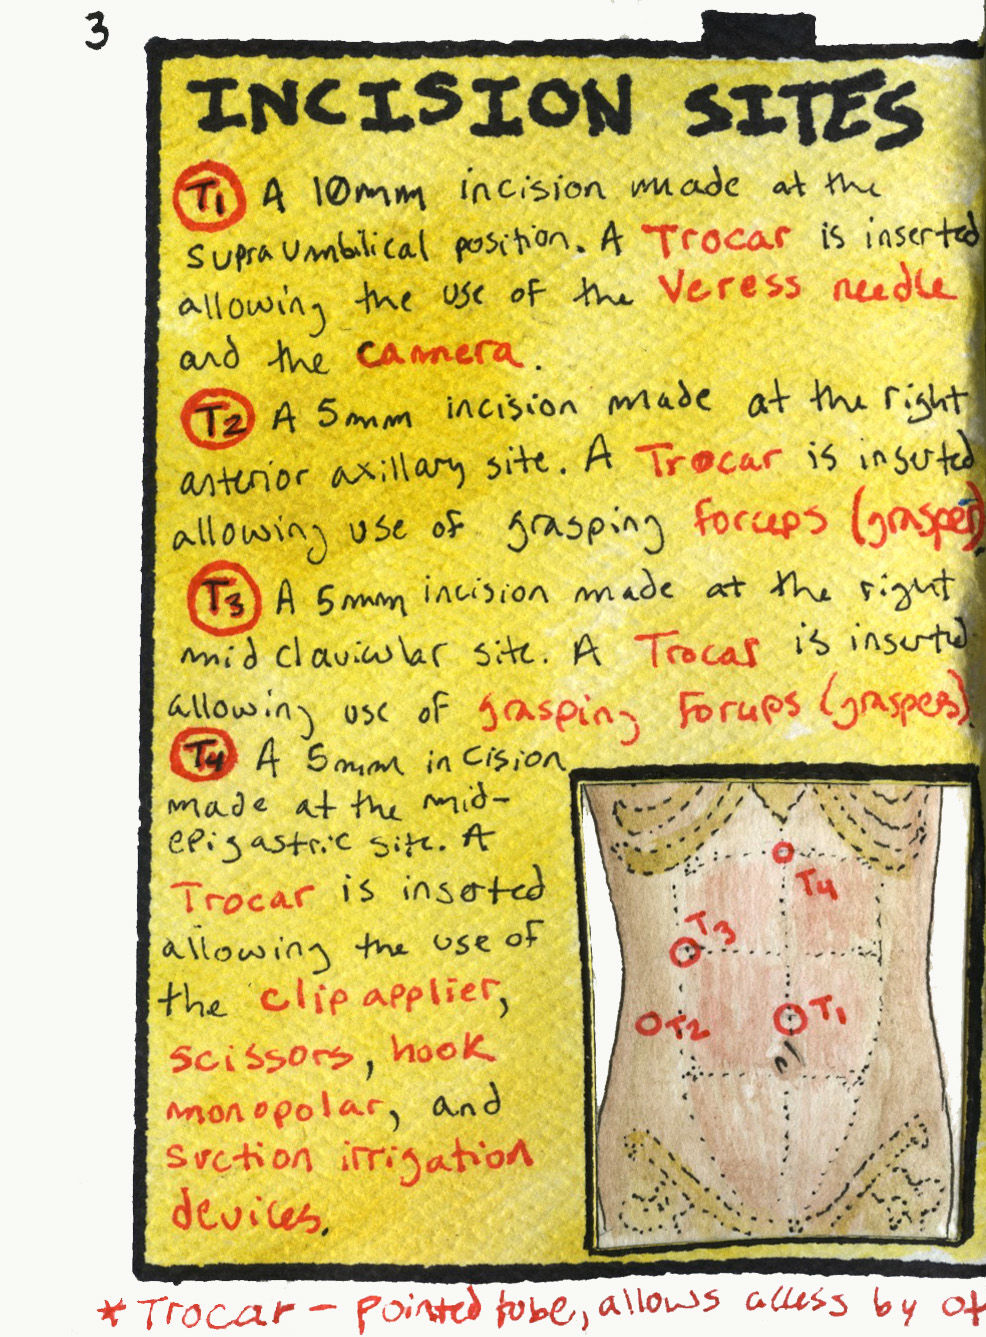 3
INCISION SITES
T1 A 10mm incision made at the
supraumbilical position. A Trocar is inserted
allowing the use of the Veress needle
and the camera.
T2 A 5mm incision made at the right
anterior axillary site. A Trocar is inserted
allowing use of grasping forceps (grasper).
T3 A 5mm incision made at the right
midclavicular site. A Trocar is inserted
allowing use of grasping Forceps (graspers).
T4 A 5mm incision
made at the mid-
epigastric site. A
Trocar is inserted
allowing the use of
the clip applier,
scissors, hook
monopolar, and
suction irrigation
devices.
T4
T3
T2
T1
* Trocar - pointed tube, allows access by ot